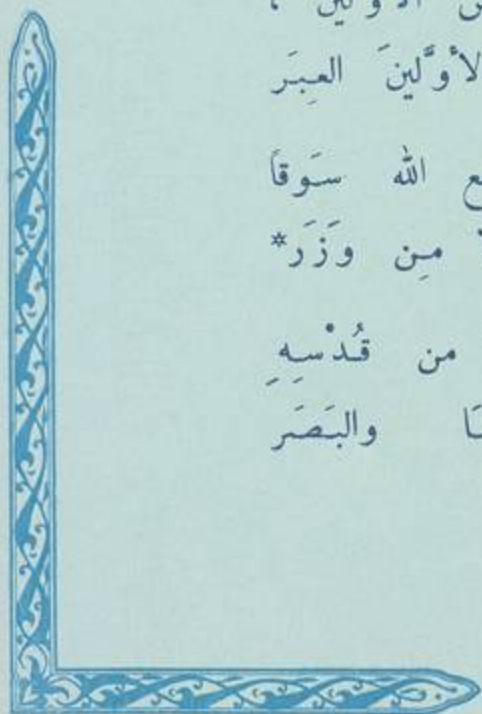 الأولين ،
الأوَّلينَ العِبَر
الله سَوقاً
مِن وَزَر*
من قُدْسِهِ
والبَصَر